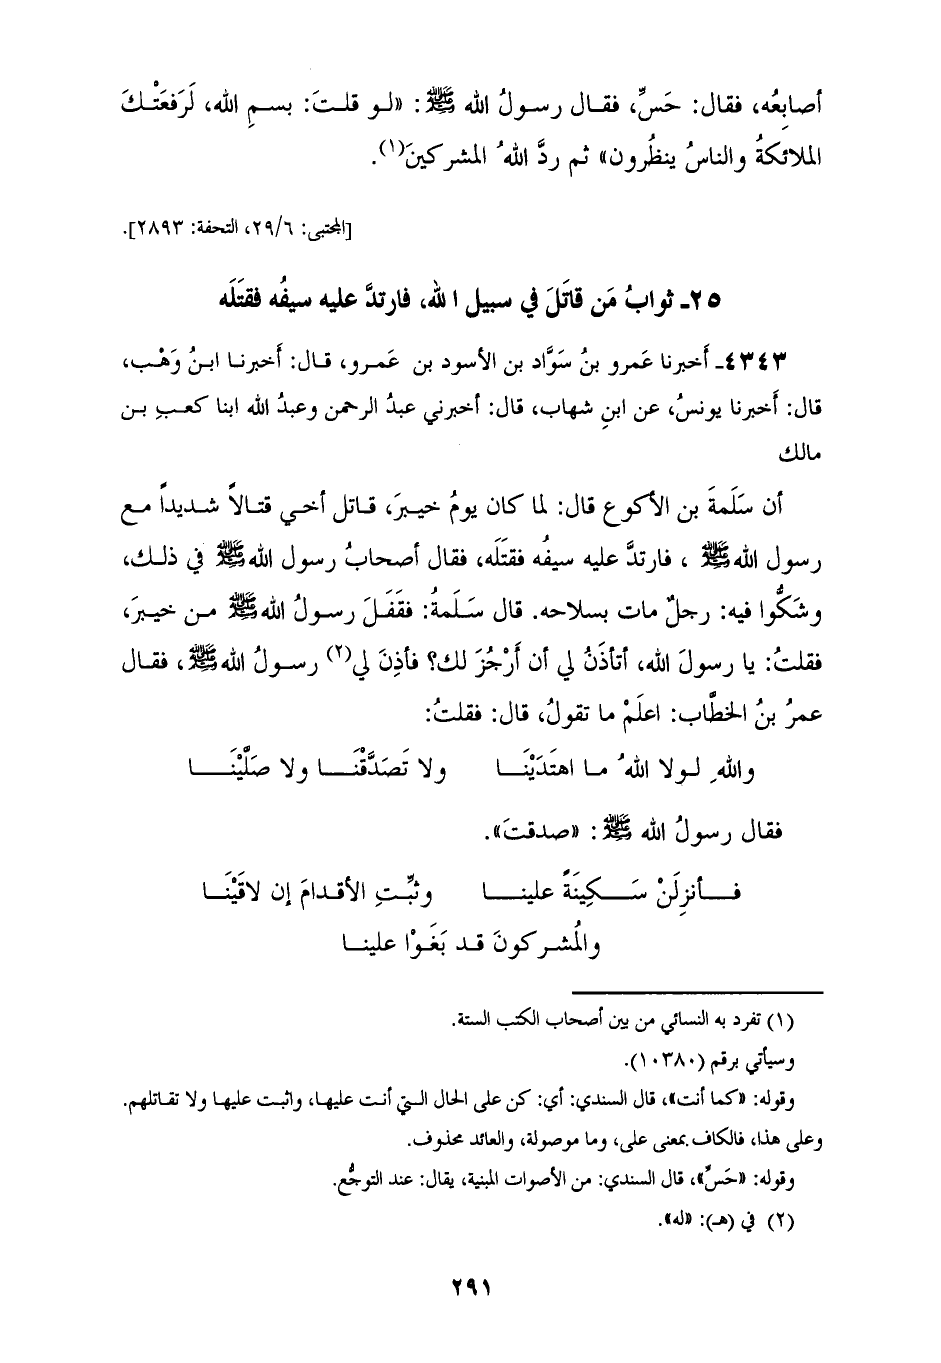 أصابِعُه، فقال: حَسِّ، فقال رسولُ الله ﷺ: «لو قلتَ: بسمِ الله، لَرَفعَتْكَ
الملائكةُ والناسُ ينظُرون» ثم ردَّ اللهُ المشركينَ(١).
[المجتبى: ٢٩/٦، التحفة: ٢٨٩٣].
٢٥ـ ثوابُ مَن قاتَلَ في سبيل الله، فارتدَّ عليه سيفُه فقتَلَه
٤٣٤٣ـ أَخبرنا عَمرو بنُ سَوَّاد بن الأسود بن عَمرو، قال: أَخبرنا ابنُ وَهْب،
قال: أَخبرنا يونسُ، عن ابنِ شهاب، قال: أخبرني عبدُ الرحمن وعبدُ الله ابنا كعبِ بن
مالك
أن سَلَمةَ بن الأكوع قال: لما كان يومُ خيبرَ، قاتل أخي قتالاً شديداً مع
رسول الله ﷺ ، فارتدَّ عليه سيفُه فقتَلَه، فقال أصحابُ رسول الله ﷺ في ذلك،
وشَكُّوا فيه: رجلٌ مات بسلاحه. قال سَلَمةُ: فقَفَلَ رسولُ الله ﷺ من خيبرَ،
فقلتُ: يا رسولَ الله، أتأذَنُ لي أن أَرْجُزَ لك؟ فأذِنَ لي(٢) رسولُ الله ﷺ، فقال
عمرُ بنُ الخطَّاب: اعلَمْ ما تقولُ، قال: فقلتُ:
واللهِ لولا اللهُ ما اهتَدَيْنَا ولا تَصَدَّقْنَا ولا صَلَّيْنَا
فقال رسولُ الله ﷺ: «صدقتَ».
فأنزِلَنْ سَكِينَةً علينا وثبِّتِ الأقدامَ إن لاقَيْنَا
والمُشركونَ قد بَغَوْا علينا
(١) تفرد به النسائي من بين أصحاب الكتب الستة.
وسيأتي برقم (١٠٣٨٠).
وقوله: «كما أنت»، قال السندي: أي: كن على الحال التي أنت عليها، واثبت عليها ولا تقاتلهم.
وعلى هذا، فالكاف بمعنى على، وما موصولة، والعائد محذوف.
وقوله: «حَسِّ»، قال السندي: من الأصوات المبنية، يقال: عند التوجُّع.
(٢) في (هـ): «له».
٢٩١